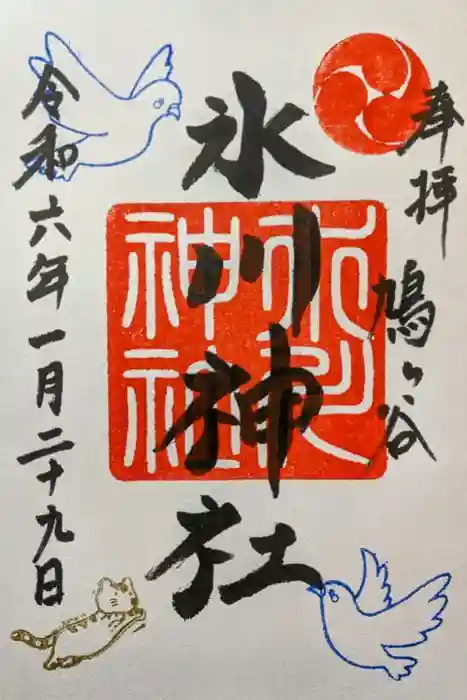 奉拝
鳩ヶ谷
氷川神社
氷川
神社
令和六年一月二十九日